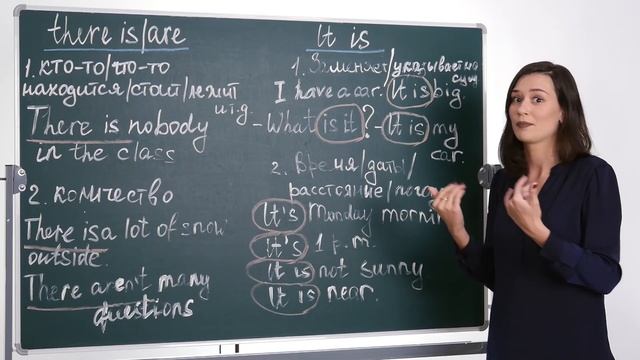 there is/are
1. кто-то/что-то
находится/стоит/лежит
и т.д
There is nobody
in the class
2. количество
There is a lot of snow
outside.
There aren't many
questions
It is
1. Заменяет/указывает на
сущ
I have a car. It is big.
- What is it? - It is my
car.
2. Время/даты/
расстояние/
It's Monday
It's 1 p.m.
It is not sunny
It is near.